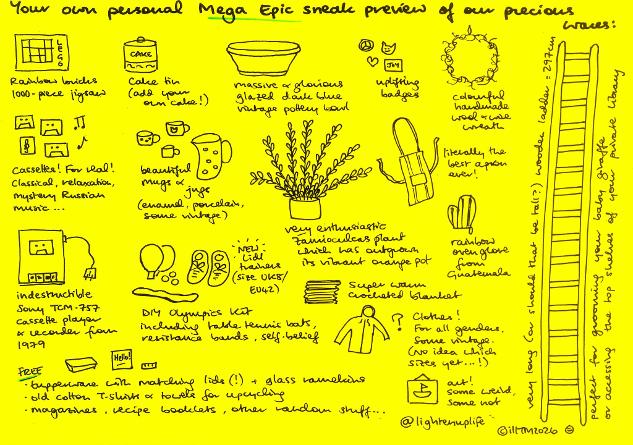 Your own personal Mega Epic sneak preview of our precious wares:
LEGO
Rainbow bricks
1000-piece jigsaw
CAKE
Cake tin
(add your
own cake!)
massive & glorious
glazed dark blue
vintage pottery bowl
JOY
uplifting
badges
colourful
handmade
wool & wire
wreath
Cassettes! For real!
Classical, relaxation,
mystery Russian
music...
beautiful
mugs &
jugs
(enamel, porcelain,
some vintage)
very enthusiastic
zamioculcas plant
which has outgrown
its vibrant orange pot
literally the
best apron
ever!
rainbow
oven glove
from
Guatemala
indestructible
Sony TCM-757
cassette player
& recorder from
1979
NEW
Lidl
trainers
(size UK8/
EU42)
DIY Olympics Kit
including table tennis bats,
resistance bands, self-belief
Super warm
crocheted blanket
? Clothes!
For all genders,
some vintage.
(No idea which
sizes yet...!)
art!
some weird,
some not
very long (or should that be tall?) wooden ladder = 297cm
perfect for grooming your baby giraffe
or accessing the top shelves of your private library
FREE
Hello!
· tupperware with matching lids (!) + glass ramekins
· old cotton T-shirts & towels for upcycling
· magazines, recipe booklets, other random stuff...
@lightenuplife